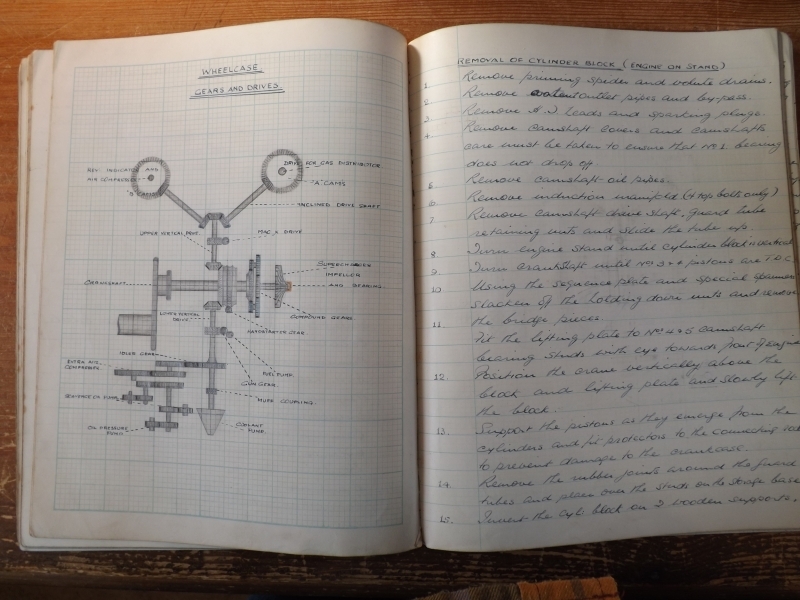 WHEELCASE.
GEARS AND DRIVES.
REV. INDICATOR AND
AIR COMPRESSOR
"B" CAMS
DRIVE FOR GAS DISTRIBUTOR
"A" CAMS
INCLINED DRIVE SHAFT
UPPER VERTICAL DRIVE
MAG. DRIVE
SUPERCHARGER
IMPELLER
AND BEARING
CRANKSHAFT
COMPOUND GEARS
LOWER VERTICAL
DRIVE
GEAR
IDLER GEARS
EXTRA AUX.
COMPRESSOR
FUEL PUMP.
GUN GEAR.
MUFF COUPLING.
SCAVENGE OIL PUMP
OIL PRESSURE
PUMP
COOLANT
PUMP.
REMOVAL OF CYLINDER BLOCK (ENGINE ON STAND)
1. Remove priming spider and volute drains.
2. Remove outlet pipes and by-pass.
3. Remove H.T. Leads and sparking plugs.
4. Remove camshaft covers and camshafts
care must be taken to ensure that No 1 bearing
does not drop off.
5. Remove camshaft oil pipes.
6. Remove induction manifold (4 top bolts only)
7. Remove camshaft drive shaft, guard tube
retaining nuts and slide the tube up.
8. Turn engine stand until cylinder block is vertical
9. Turn crankshaft until Nos 3 & 4 pistons are T.D.C.
10. Using the sequence plate and special spanner
slacken off the holding down nuts and remove
the bridge pieces.
11. Fit the lifting plate to No camshaft
bearing studs with eye towards front of engine
12. Position the crane vertically above the
block and lifting plate and slowly lift
the block.
13. Support the pistons as they emerge from the
cylinders and fit protectors to the connecting rods
to prevent damage to the crankcase.
14. Remove the rubber joints around the guard
tubes and place over the studs on the base
15. Invert the cyl. block on 2 wooden supports.